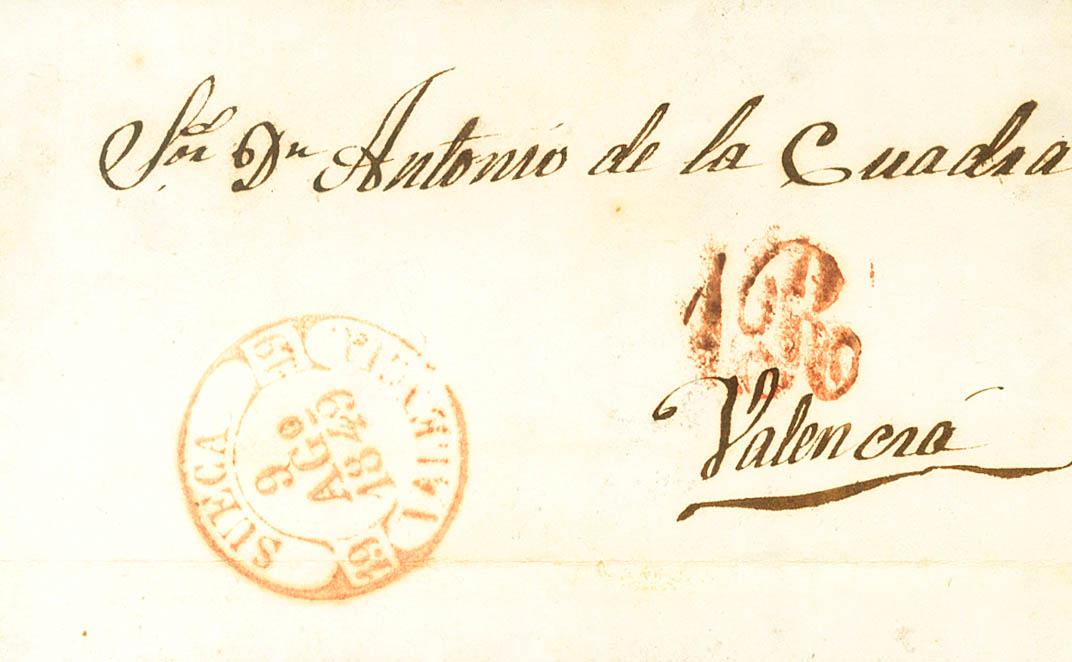 Sor. Dn Antonio de la Cuadra
1R
Valencia
SUECA
9
AGO
1849
VALENCIA
19